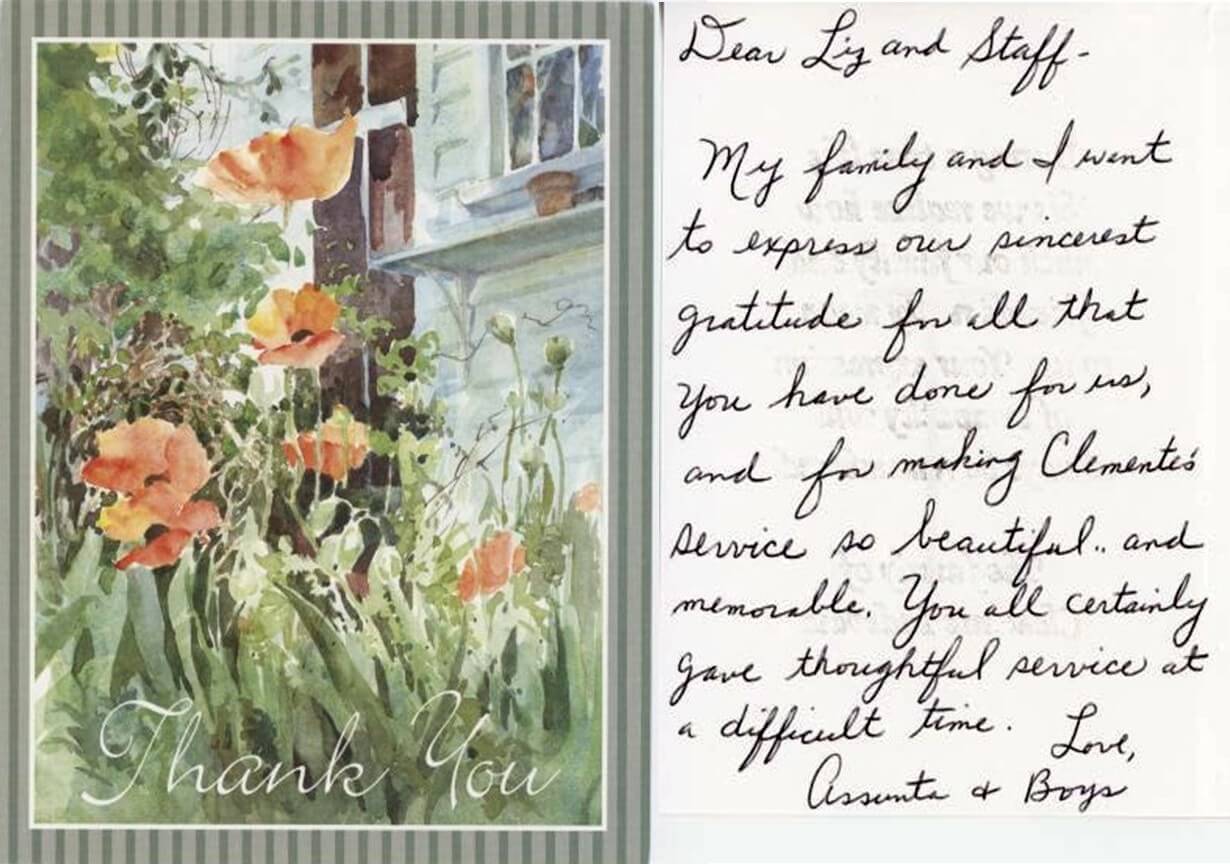 Thank You
Dear Liz and Staff-
My family and I want
to express our sincerest
gratitude for all that
you have done for us,
and for making Clemente's
service so beautiful.. and
memorable. You all certainly
gave thoughtful service at
a difficult time.
Love,
Assunta & Boys